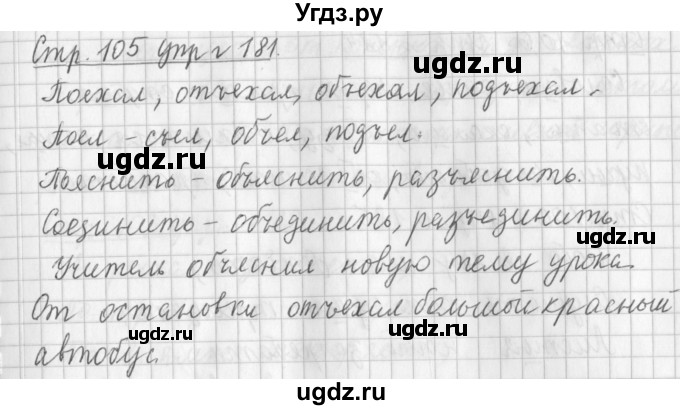 Угдз.ру
Стр. 105 упр г 181.
Поехал, отъехал, объехал, подъехал.
Поел - съел, объел, подъел.
ugdz.ru ugdz.ru
Пояснить - объяснить, разъяснить.
Соединить - объединить, разъединить.
ugdz.ru
Учитель объяснил новую тему урока.
ugdz.ru
От остановки отъехал большой красный
ugdz.ru
автобус.
ugdz.ru
ugdz.ru